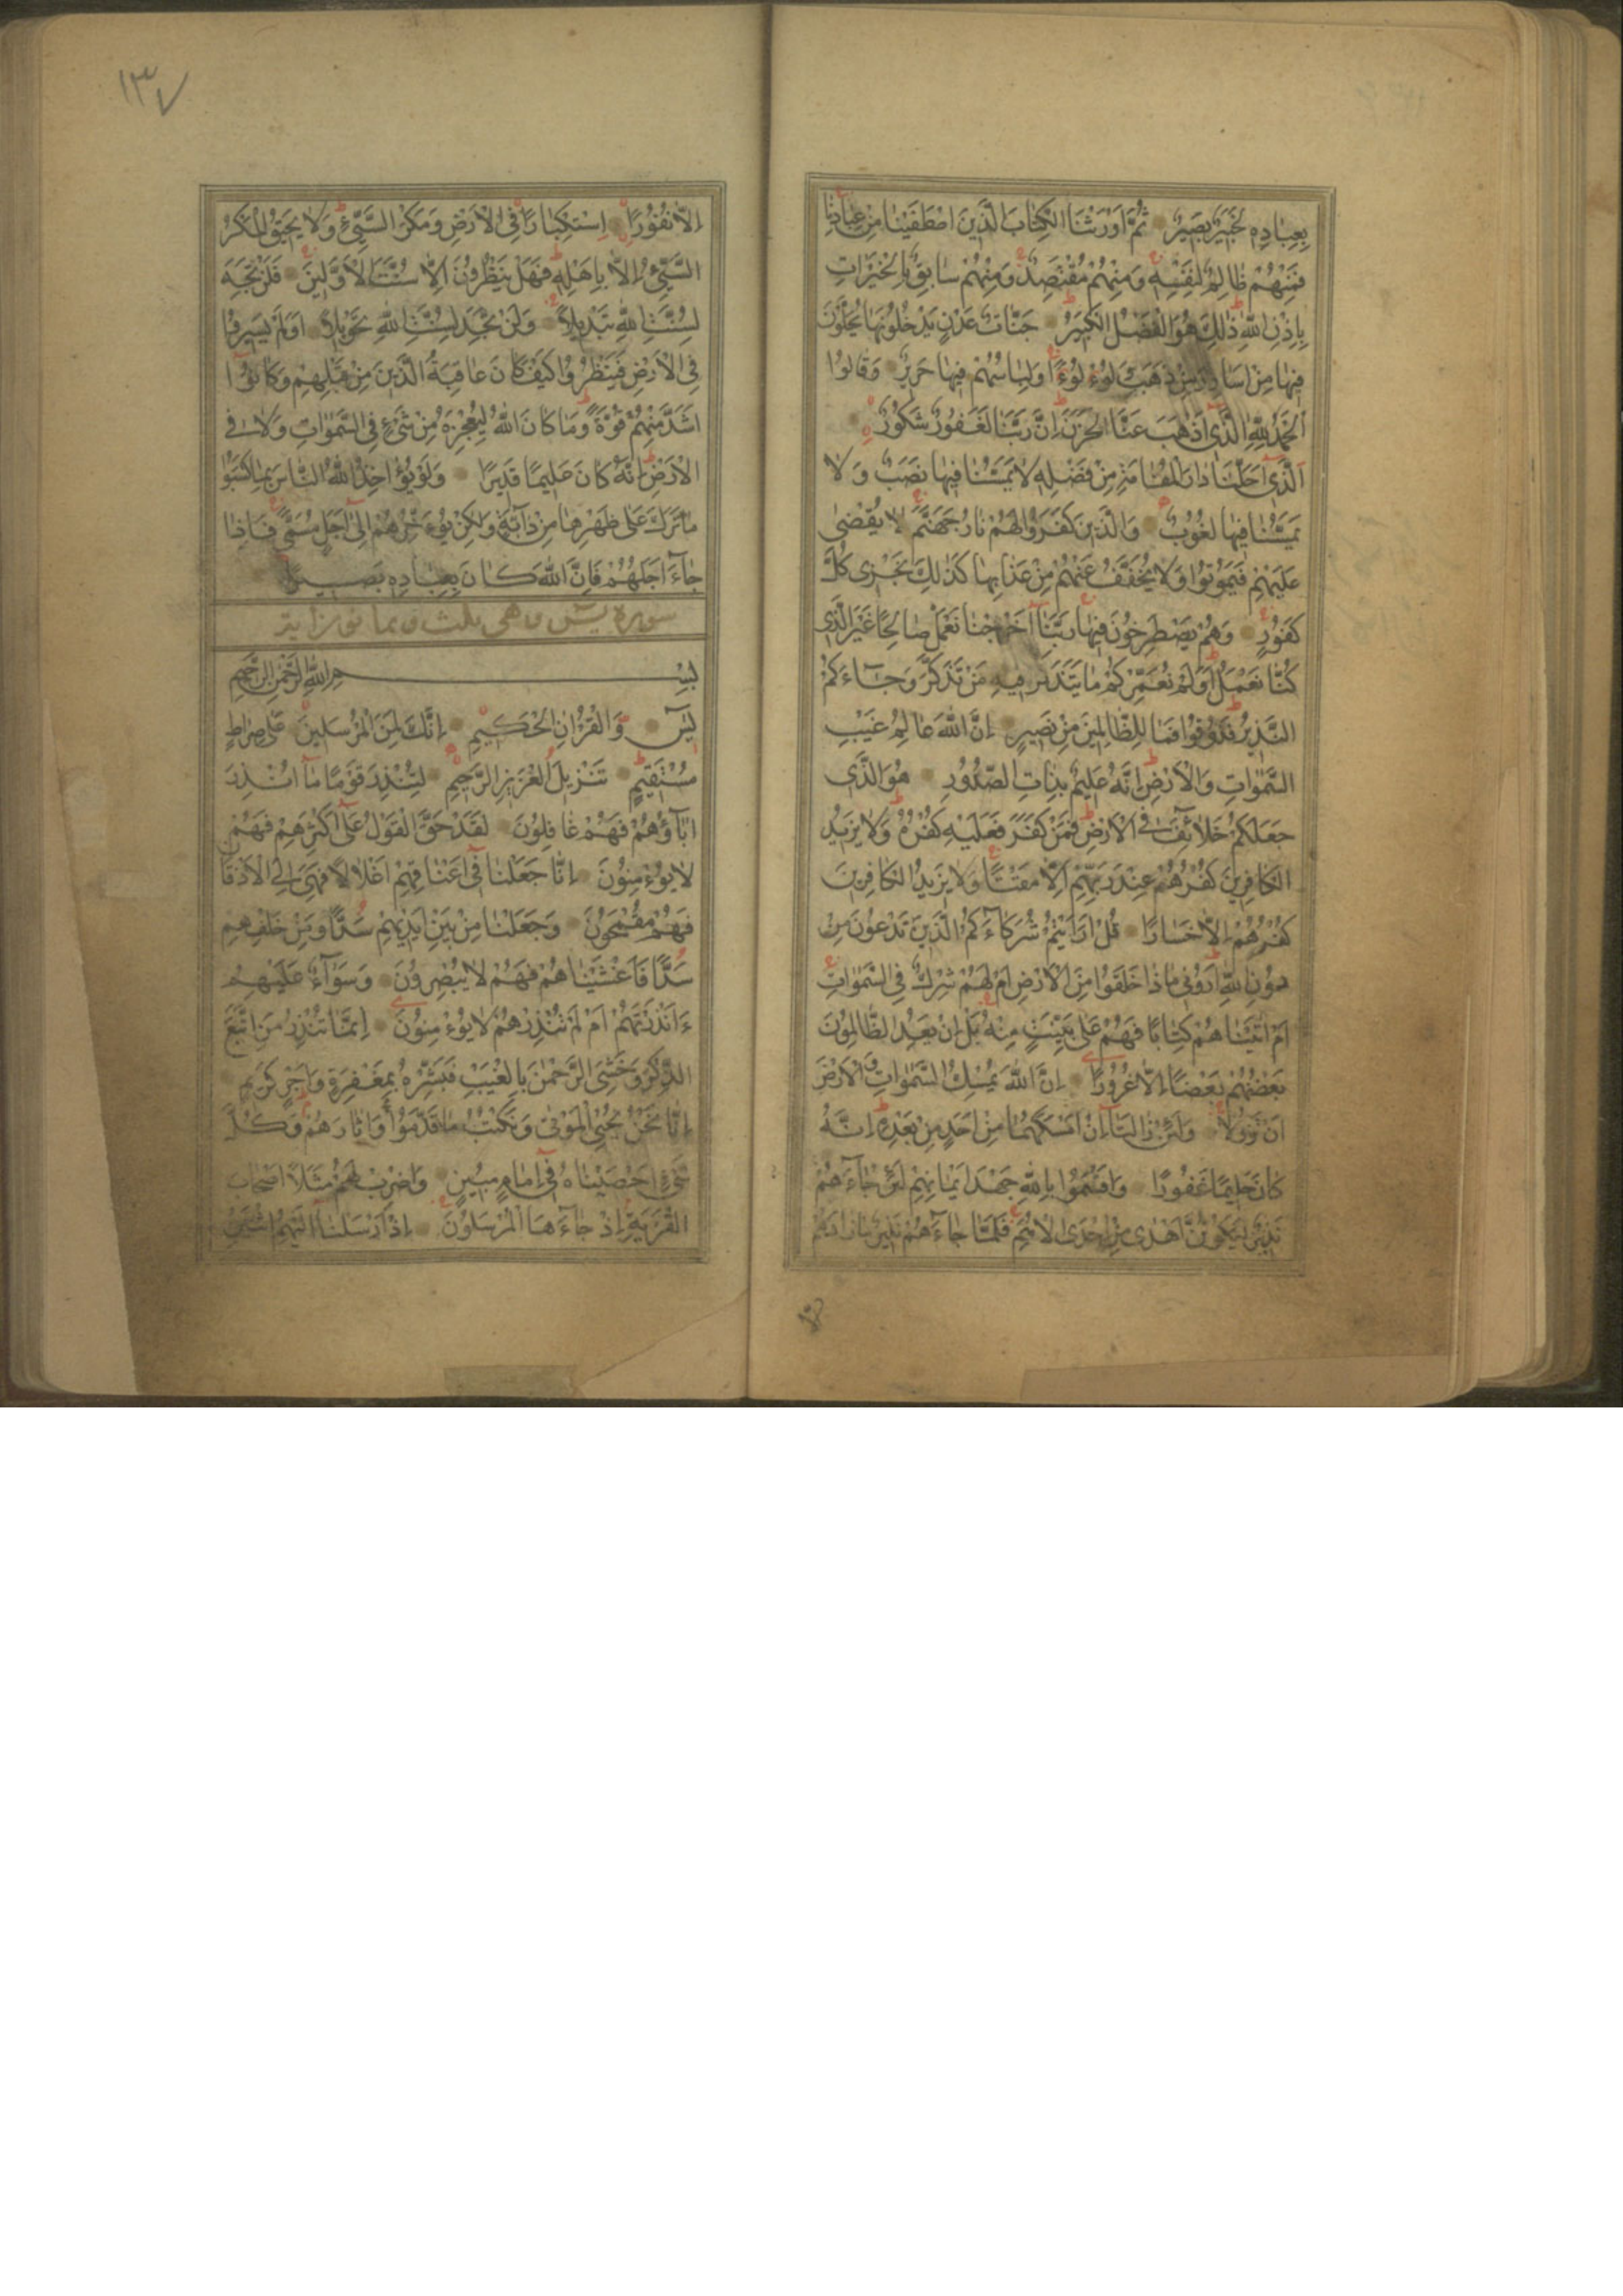 بِعِبَادِهِ لَخَبِيرٌ بَصِيرٌ ثُمَّ اَوْرَثْنَا الْكِتَابَ الَّذِينَ اصْطَفَيْنَا مِنْ عِبَادِنَا
فَمِنْهُمْ ظَالِمٌ لِنَفْسِهِ وَمِنْهُمْ مُقْتَصِدٌ وَمِنْهُمْ سَابِقٌ بِالْخَيْرَاتِ
بِاِذْنِ اللهِ ذٰلِكَ هُوَ الْفَضْلُ الْكَبِيرُ جَنَّاتُ عَدْنٍ يَدْخُلُونَهَا يُحَلَّوْنَ
فِيهَا مِنْ اَسَاوِرَ مِنْ ذَهَبٍ وَلُؤْلُؤًا وَلِبَاسُهُمْ فِيهَا حَرِيرٌ وَقَالُوا
الْحَمْدُ لِلّٰهِ الَّذِى اَذْهَبَ عَنَّا الْحَزَنَ اِنَّ رَبَّنَا لَغَفُورٌ شَكُورٌ
اَلَّذِى اَحَلَّنَا دَارَ الْمُقَامَةِ مِنْ فَضْلِهِ لَا يَمَسُّنَا فِيهَا نَصَبٌ وَلَا
يَمَسُّنَا فِيهَا لُغُوبٌ وَالَّذِينَ كَفَرُوا لَهُمْ نَارُ جَهَنَّمَ لَا يُقْضٰى
عَلَيْهِمْ فَيَمُوتُوا وَلَا يُخَفَّفُ عَنْهُمْ مِنْ عَذَابِهَا كَذٰلِكَ نَجْزِى كُلَّ
كَفُورٍ وَهُمْ يَصْطَرِخُونَ فِيهَا رَبَّنَا اَخْرِجْنَا نَعْمَلْ صَالِحًا غَيْرَ الَّذِى
كُنَّا نَعْمَلُ اَوَلَمْ نُعَمِّرْكُمْ مَا يَتَذَكَّرُ فِيهِ مَنْ تَذَكَّرَ وَجَآءَكُمُ
النَّذِيرُ فَذُوقُوا فَمَا لِلظَّالِمِينَ مِنْ نَصِيرٍ اِنَّ اللهَ عَالِمُ غَيْبِ
السَّمٰوَاتِ وَالْاَرْضِ اِنَّهُ عَلِيمٌ بِذَاتِ الصُّدُورِ هُوَ الَّذِى
جَعَلَكُمْ خَلَآئِفَ فِى الْاَرْضِ فَمَنْ كَفَرَ فَعَلَيْهِ كُفْرُهُ وَلَا يَزِيدُ
الْكَافِرِينَ كُفْرُهُمْ عِنْدَ رَبِّهِمْ اِلَّا مَقْتًا وَلَا يَزِيدُ الْكَافِرِينَ
كُفْرُهُمْ اِلَّا خَسَارًا قُلْ اَرَاَيْتُمْ شُرَكَآءَكُمُ الَّذِينَ تَدْعُونَ مِنْ
دُونِ اللهِ اَرُونِى مَاذَا خَلَقُوا مِنَ الْاَرْضِ اَمْ لَهُمْ شِرْكٌ فِى السَّمٰوَاتِ
اَمْ اٰتَيْنَاهُمْ كِتَابًا فَهُمْ عَلٰى بَيِّنَتٍ مِنْهُ بَلْ اِنْ يَعِدُ الظَّالِمُونَ
بَعْضُهُمْ بَعْضًا اِلَّا غُرُورًا اِنَّ اللهَ يُمْسِكُ السَّمٰوَاتِ وَالْاَرْضَ
اَنْ تَزُولَا وَلَئِنْ زَالَتَا اِنْ اَمْسَكَهُمَا مِنْ اَحَدٍ مِنْ بَعْدِهِ اِنَّهُ
كَانَ حَلِيمًا غَفُورًا وَاَقْسَمُوا بِاللهِ جَهْدَ اَيْمَانِهِمْ لَئِنْ جَآءَهُمْ
نَذِيرٌ لَيَكُونُنَّ اَهْدٰى مِنْ اِحْدَى الْاُمَمِ فَلَمَّا جَآءَهُمْ نَذِيرٌ مَا زَادَهُمْ
١٣٧
اِلَّا نُفُورًا اِسْتِكْبَارًا فِى الْاَرْضِ وَمَكْرَ السَّيِّئِ وَلَا يَحِيقُ الْمَكْرُ
السَّيِّئُ اِلَّا بِاَهْلِهِ فَهَلْ يَنْظُرُونَ اِلَّا سُنَّتَ الْاَوَّلِينَ فَلَنْ تَجِدَ
لِسُنَّتِ اللهِ تَبْدِيلًا وَلَنْ تَجِدَ لِسُنَّتِ اللهِ تَحْوِيلًا اَوَلَمْ يَسِيرُوا
فِى الْاَرْضِ فَيَنْظُرُوا كَيْفَ كَانَ عَاقِبَةُ الَّذِينَ مِنْ قَبْلِهِمْ وَكَانُوا
اَشَدَّ مِنْهُمْ قُوَّةً وَمَا كَانَ اللهُ لِيُعْجِزَهُ مِنْ شَىْءٍ فِى السَّمٰوَاتِ وَلَا فِى
الْاَرْضِ اِنَّهُ كَانَ عَلِيمًا قَدِيرًا وَلَوْ يُؤَاخِذُ اللهُ النَّاسَ بِمَا كَسَبُوا
مَا تَرَكَ عَلٰى ظَهْرِهَا مِنْ دَآبَّةٍ وَلٰكِنْ يُؤَخِّرُهُمْ اِلٰى اَجَلٍ مُسَمًّى فَاِذَا
جَآءَ اَجَلُهُمْ فَاِنَّ اللهَ كَانَ بِعِبَادِهِ بَصِيرًا
سورة يس وهى ثلث وثمانون اية
بِسْمِ اللهِ الرَّحْمٰنِ الرَّحِيمِ
يٰسٓ وَالْقُرْاٰنِ الْحَكِيمِ اِنَّكَ لَمِنَ الْمُرْسَلِينَ عَلٰى صِرَاطٍ
مُسْتَقِيمٍ تَنْزِيلَ الْعَزِيزِ الرَّحِيمِ لِتُنْذِرَ قَوْمًا مَآ اُنْذِرَ
اٰبَآؤُهُمْ فَهُمْ غَافِلُونَ لَقَدْ حَقَّ الْقَوْلُ عَلٰى اَكْثَرِهِمْ فَهُمْ
لَا يُؤْمِنُونَ اِنَّا جَعَلْنَا فِى اَعْنَاقِهِمْ اَغْلَالًا فَهِىَ اِلَى الْاَذْقَانِ
فَهُمْ مُقْمَحُونَ وَجَعَلْنَا مِنْ بَيْنِ اَيْدِيهِمْ سَدًّا وَمِنْ خَلْفِهِمْ
سَدًّا فَاَغْشَيْنَاهُمْ فَهُمْ لَا يُبْصِرُونَ وَسَوَآءٌ عَلَيْهِمْ
ءَاَنْذَرْتَهُمْ اَمْ لَمْ تُنْذِرْهُمْ لَا يُؤْمِنُونَ اِنَّمَا تُنْذِرُ مَنِ اتَّبَعَ
الذِّكْرَ وَخَشِىَ الرَّحْمٰنَ بِالْغَيْبِ فَبَشِّرْهُ بِمَغْفِرَةٍ وَاَجْرٍ كَرِيمٍ
اِنَّا نَحْنُ نُحْيِى الْمَوْتٰى وَنَكْتُبُ مَا قَدَّمُوا وَاٰثَارَهُمْ وَكُلَّ
شَىْءٍ اَحْصَيْنَاهُ فِى اِمَامٍ مُبِينٍ وَاضْرِبْ لَهُمْ مَثَلًا اَصْحَابَ
الْقَرْيَةِ اِذْ جَآءَهَا الْمُرْسَلُونَ اِذْ اَرْسَلْنَا اِلَيْهِمُ اثْنَيْنِ